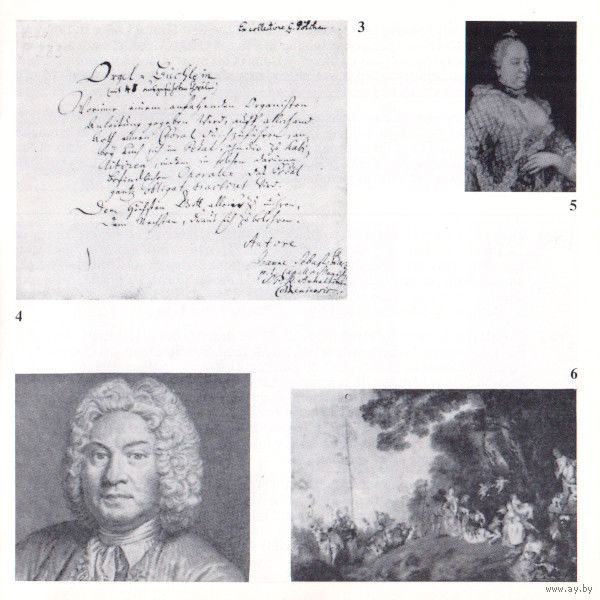 Ex collectione G. Pölchau
3
Orgel-Büchlein
Worinne einem anfahenden Organisten
Anleitung gegeben wird, auff allerhand
Arth einen Choral durchzuführen, an-
bey auch sich im Pedal studio zu habi-
litiren, indem in solchen darinne
befindlichen Choralen das Pedal
gantz obligat tractiret wird.
Dem Höchsten Gott allein zu Ehren,
Dem Nechsten, draus sich zu belehren.
Autore
Joanne Sebast. Bach
p. t. Capellae Magistri
S. P. R. Anhaltini-
Cotheniensis.
5
4
6
www.ay.by